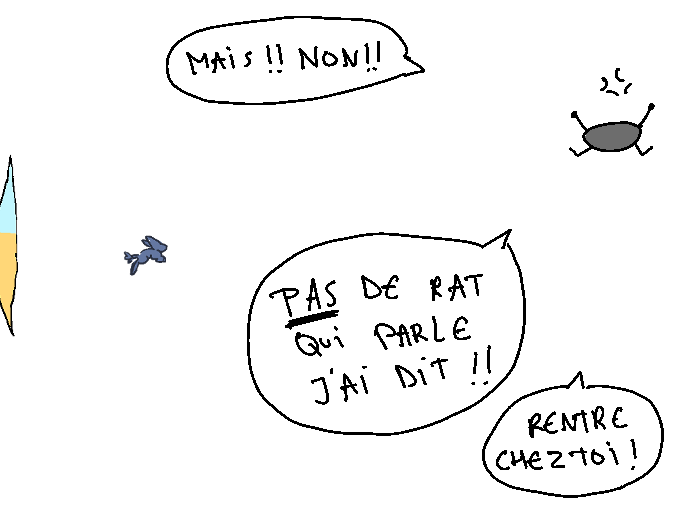 MAIS !! NON!!
PAS DE RAT
QUI PARLE
J'AI DIT !!
RENTRE
CHEZ TOI !